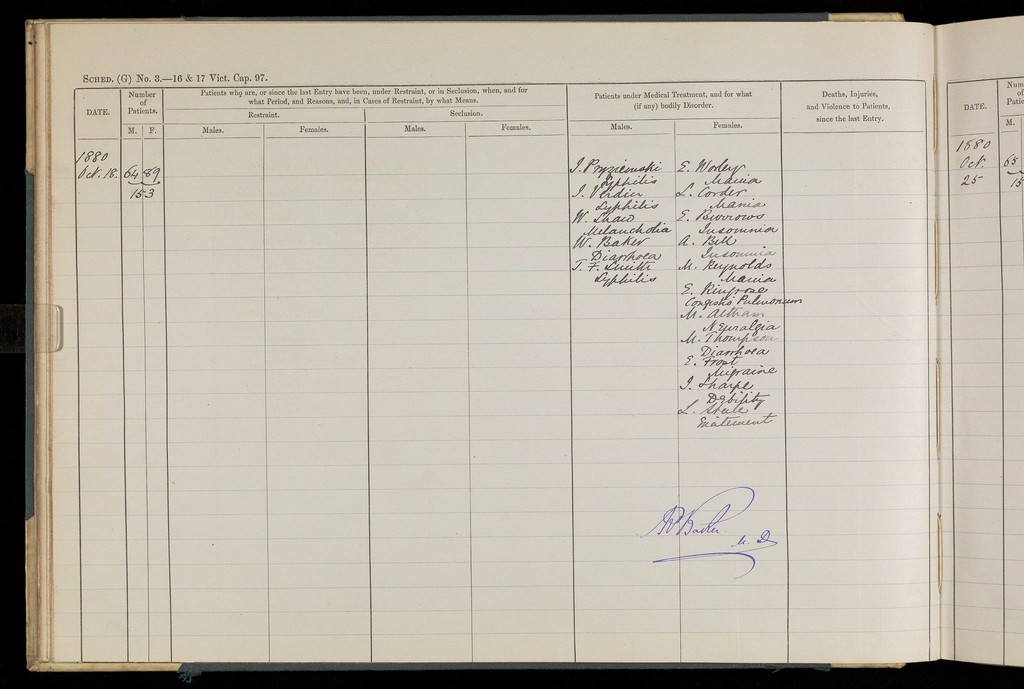 SCHED. (G) No. 3.—16 & 17 Vict. Cap. 97.
DATE.
Number of Patients.
M. F.
Patients who are, or since the last Entry have been, under Restraint, or in Seclusion, when, and for
what Period, and Reasons, and, in Cases of Restraint, by what Means.
Restraint.
Seclusion.
Males.
Females.
Males.
Females.
Patients under Medical Treatment, and for what
(if any) bodily Disorder.
Males.
Females.
Deaths, Injuries,
and Violence to Patients,
since the last Entry.
1880
Oct. 18. 64 89
153
J. Pryziemski
Syphilis
J. Verdier
Syphilis
W. Shaw
Melancholia
W. Baker
Diarrhoea
T. F. Smith
Syphilis
E. Worley
Mania
L. Corder
Mania
E. Burrows
Insomnia
A. Bell
Insomnia
M. Reynolds
Mania
E. Ringrose
Congestio Pulmonum
M. Altham
Neuralgia
M. Thompson
Diarrhoea
E. Frost
Migraine
J. Sharpe
Debility
L.
Baker
M. D.
DATE.
M.
1880
Oct. 65
25 15